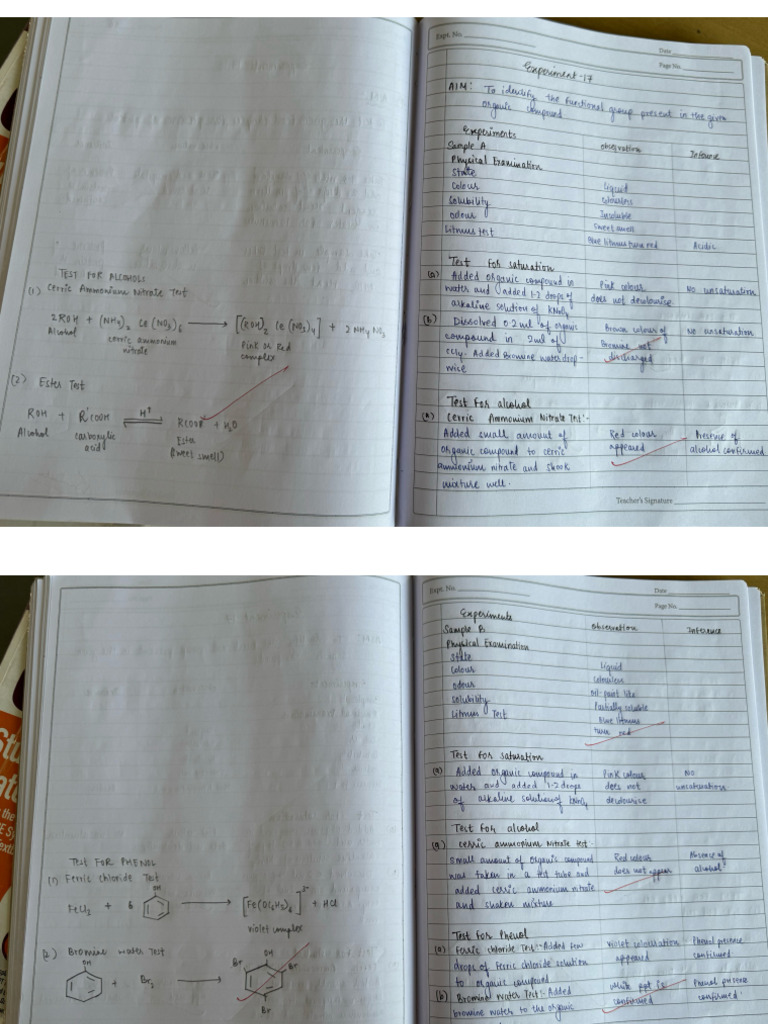 TEST FOR ALCOHOLS
(1) Cerric Ammonium Nitrate Test
2ROH + (NH4)2 Ce(NO3)6 ⟶ [(ROH)2 Ce(NO3)4] + 2NH4NO3
Alcohol cerric ammonium nitrate Pink or Red complex
(2) Ester Test
ROH + R'COOH ⇌ H+ RCOOR + H2O
Alcohol carboxylic acid Ester
(sweet smell)
Expt. No.
Date
Page No.
Experiment-17
AIM: To identify the functional group present in the given
organic compound
Experiments
Sample A Observation Inference
Physical Examination
State
Colour liquid
Solubility colourless
Odour Insoluble
Litmus test sweet smell
Blue litmus turn red Acidic
Test for saturation
(a) Added organic compound in Pink colour No unsaturation
water and added 1-2 drops of does not decolourise
alkaline solution of KMnO4
(b) Dissolved 0.2 ml of organic Brown colour of No unsaturation
compound in 2ml of Bromine not
CCl4. Added Bromine water drop- discharged
wice
Test for alcohol
(a) Cerric Ammonium Nitrate Test:-
Added small amount of Red colour Presence of
organic compound to cerric appeared alcohol confirmed
ammonium nitrate and shook
mixture well.
Teacher's Signature
TEST FOR PHENOL
(1) Ferric chloride Test
FeCl3 + 6 OH ⟶ [Fe(OC6H5)6]3- + HCl
violet complex
(2) Bromine water Test
OH + Br2 ⟶ OH Br Br Br
Expt. No.
Date
Page No.
Experiments
Sample B Observation Inference
Physical Examination
State
Colour liquid
Odour colourless
Solubility Partially soluble
Litmus Test Blue litmus
turn red
Test for saturation
(a) Added organic compound in Pink colour No
water and added 1-2 drops does not unsaturation
of alkaline solution of KMnO4 decolourise
Test for alcohol
(a) cerric ammonium Nitrate test:-
Small amount of organic compound Red colour Absence of
was taken in a test tube and does not appear alcohol
added cerric ammonium nitrate
and shaken mixture
Test for Phenol
(a) Ferric chloride Test:- Added few violet colouration Phenol presence
drops of ferric chloride solution appeared confirmed
to organic compound
(b) Bromine water Test:- Added white ppt is Phenol presence
bromine water to the organic confirmed confirmed